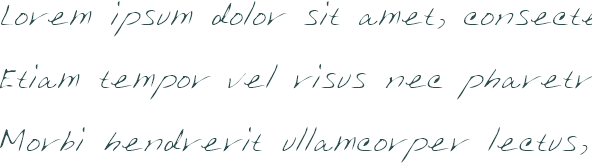 Lorem ipsum dolor sit amet, consecte
Etiam tempor vel risus nec pharetr
Morbi hendrerit ullamcorper lectus,